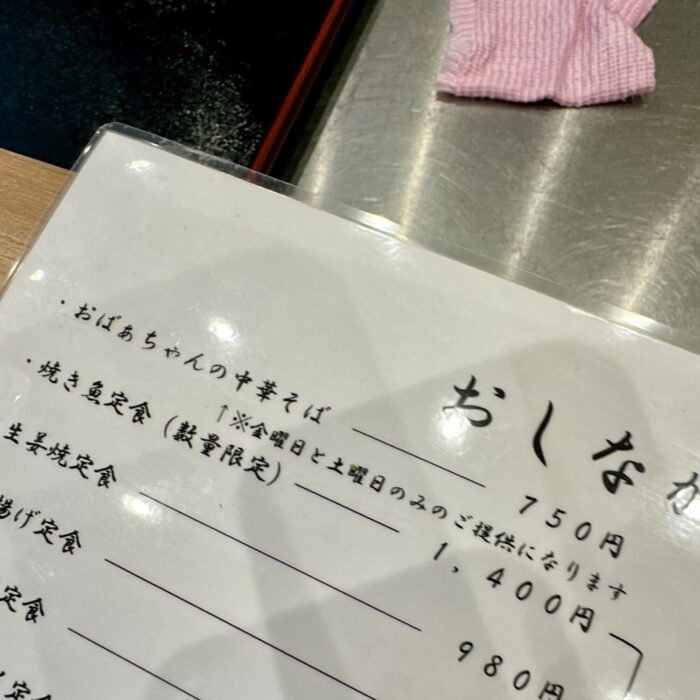 おしなが
・おばあちゃんの中華そば 750円
↑※金曜日と土曜日のみのご提供になります
・焼き魚定食(数量限定) 1,400円
生姜焼定食 980円
揚げ定食
定食
定食